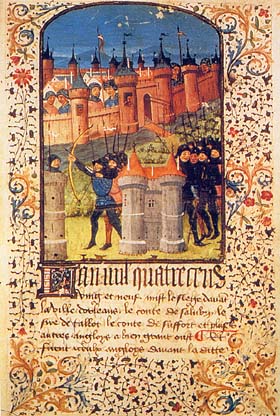 Lan mil quatre cens
vingt et neuf mist le siege davant
la ville dorleans le conte de salubry le
sire de tallbot le conte de suffort et plus
autres angloys a bien grant ost
furent angloys davant la ditte